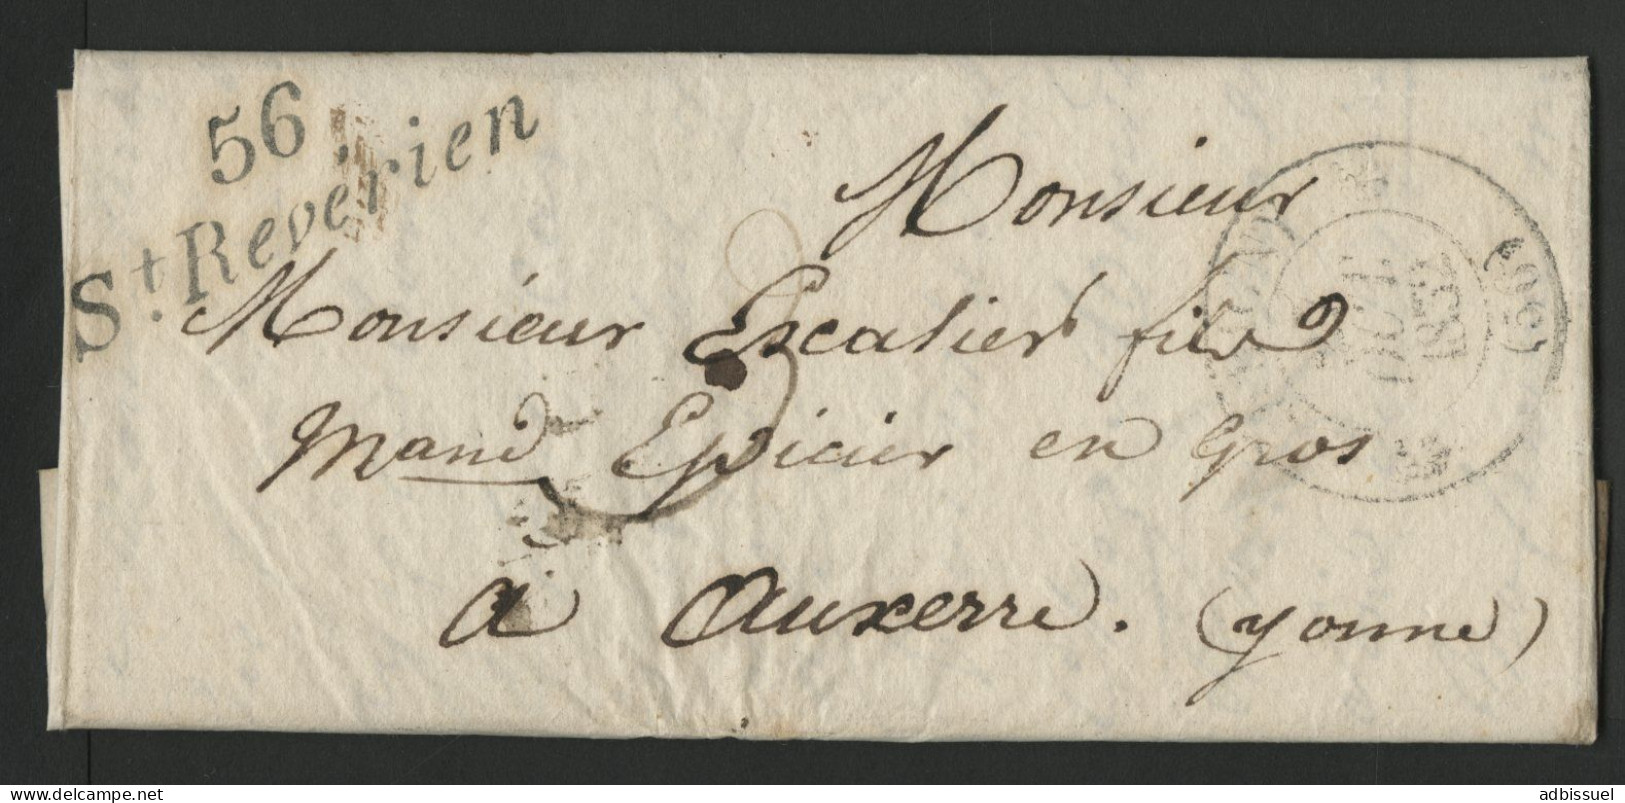 56
St. Reverien
Monsieur
Monsieur Escalier fils
Mand Epicier en Gros
a Auxerre. (yonne)
(56)
OCT.
1832
delcampe.net
adbissuel